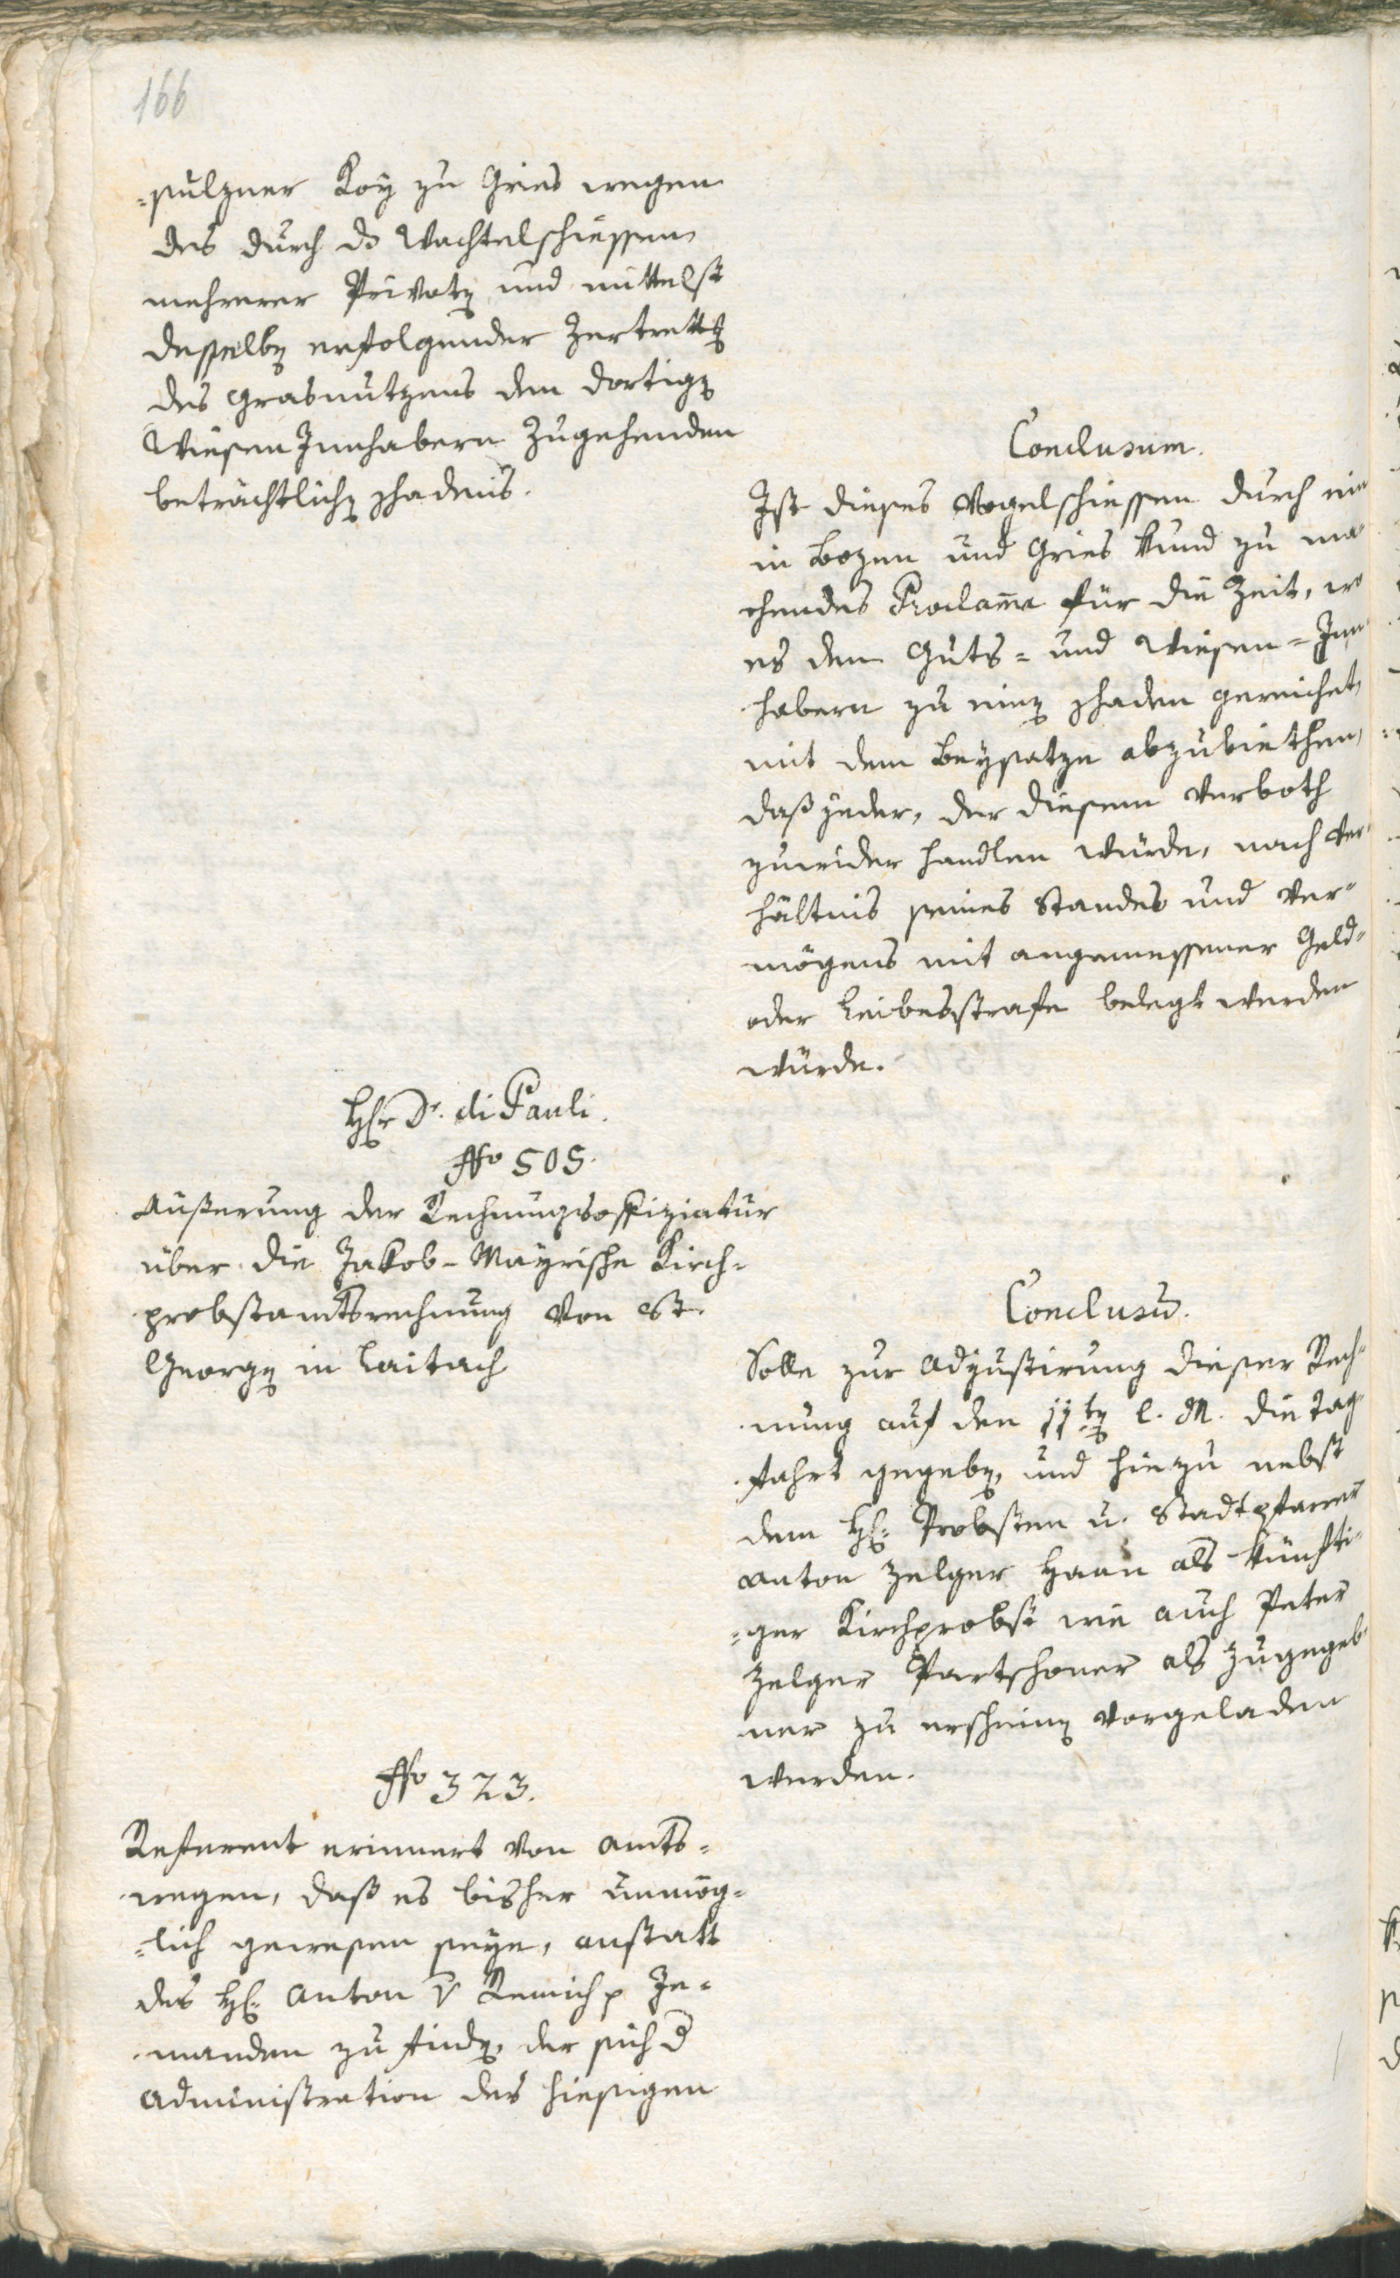 166
=sulzner Koÿ zu Gries wegen
des durch ds Wachtelschiessen
mehrerer Privaten und mittelst
desselben erfolgender Zertrettung
des Grasnutzens den dortigen
WiesenInnhabern zugehenden
beträchtlichen schadens.
Conclusum.
Ist dieses Vogelschiessen durch ein
in Bozen und Gries kund zu ma
chendes Proclama für die Zeit, wo
es den Guts= und Wiesen=Inn
habern zu einen schaden gereichet,
mit dem Beysatze abzubiethen,
daß jeder, der diesem Verboth
zuwider handlen würde, nach Ver
hältnis seines Standes und Ver=
mögens mit angemessener Geld=
oder Leibesstrafe belegt werden
würde.
Herr Dr. di Pauli.
No 505.
Äußerung der Rechnungsoffiziatur
über die Jakob=Mayrische Kirch=
probstamtsrechnung von St.
Georgen in Laitach
Conclusum.
Solle zur Adjustirung dieser Rech=
nung auf den 11ten l. M. die Tag
fahrt gegeben, und hiezu nebst
dem H: Probsten u. Stadtpfarrer
Anton Zelger Haan als künfti=
=ger Kirchprobst wie auch Peter
Zelger Partschoner als zugegeb
ner zu erscheinen vorgeladen
werden.
No 323.
Referent erinnert von Amts=
wegen, daß es bisher unmög=
=lich gewesen seye, anstatt
des H: Anton v Remich p Je=
manden zu finden, der sich d
Administration des hiesigen